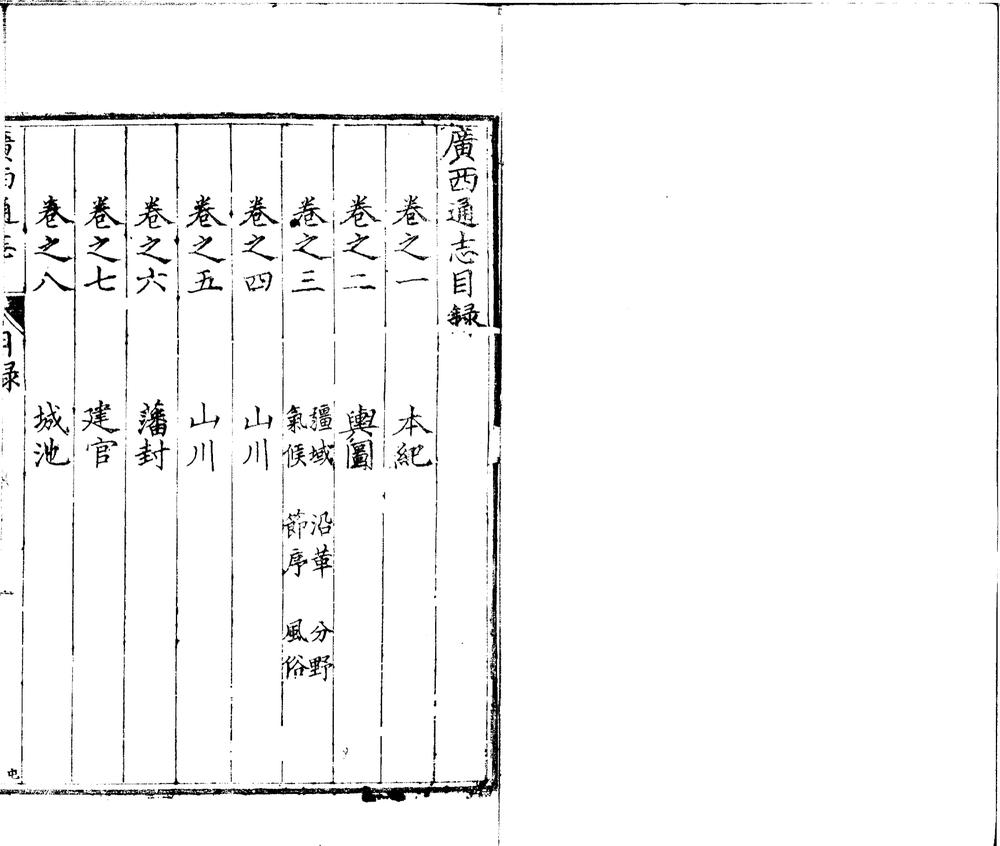 廣西通志目録
卷之一 本紀
卷之二 輿圖
卷之三 疆域 沿革 分野
氣候 節序 風俗
卷之四 山川
卷之五 山川
卷之六 藩封
卷之七 建官
卷之八 城池
廣西通志 目録